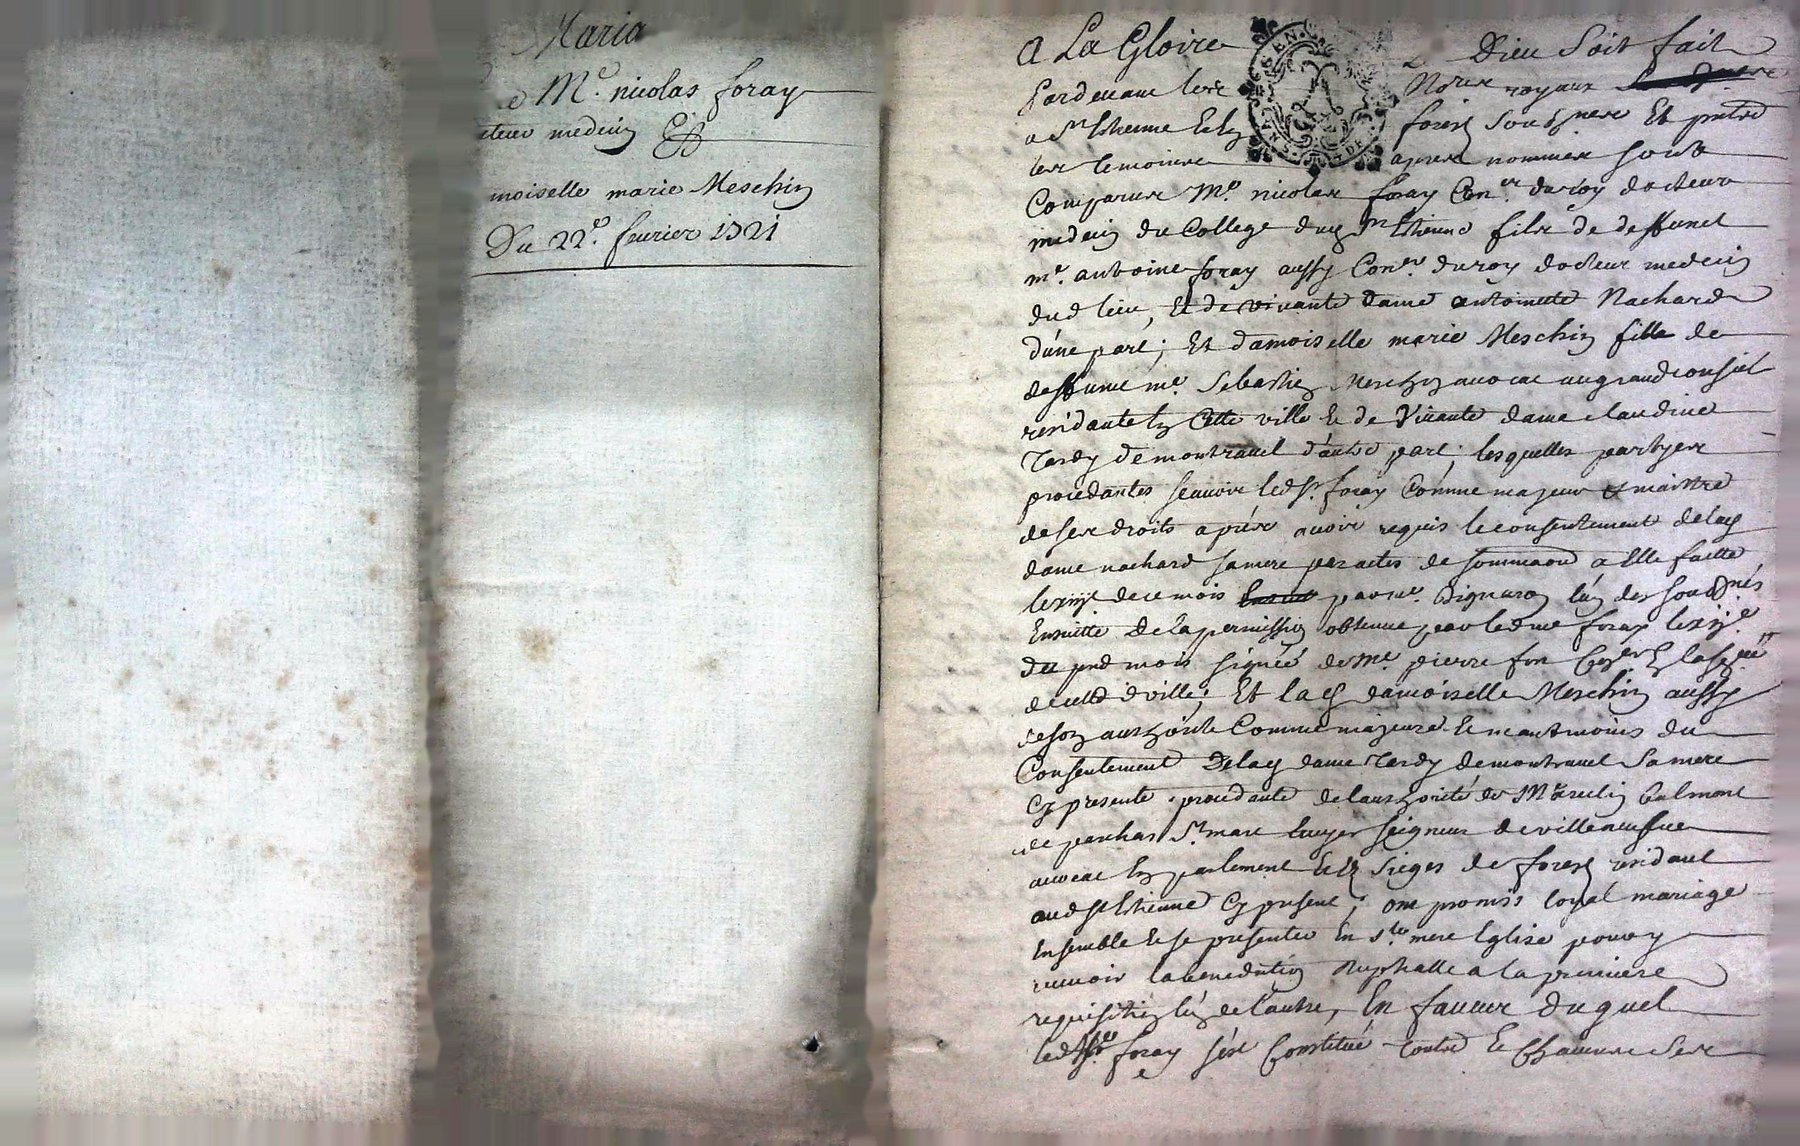 Maria
Me. nicolas foray
medecin
moiselle marie Meschin
Du 22e. fevrier 1721
a La Gloire de Dieu Soit fait
Pardevant les Nores royaux
a St Estienne En forest Soubsignes Et presents
les temoins apres nommes sont
Comparus Me. nicolas foray Coner. du roy docteur
medecin du College dud St Estienne fils de deffunct
me. antoine foray aussy Coner. du roy docteur medecin
dud lieu, Et de vivante dame antoinette Nachard
d'une part; Et damoiselle marie Meschin fille de
deffunt me. Sebastien Meschin avocat au grand conseil
residante En Cette ville Et de Vivante dame claudine
Tardy de montravel d'autre part; lesquelles partyes
procedantes scavoir led Sr. foray Comme majeur et maistre
de ses droits apres avoir requis le consentement de lad
dame nachard sa mere par actes de sommaon a Elle faitte
de ce mois par me. l'un des soubnés
Ensuitte de la permission obtenue par led me foray
du pnt mois signée de me pierre
ville; Et lad damoiselle Meschin aussy
de son authorité Comme majeure Et neantmoins du
Consentement De lad dame Tardy de montravel Sa mere
Cy presente procedante de l'authorité de
St. marc Ecuyer seigneur de villeneufve
avocat En parlement Et Sieges de forest residant
aud St Estienne Cy present; ont promis loyal mariage
Ensemble Et se presenter En Ste. mere Eglise pour y
recevoir la benediction Nuptialle a la premiere
requisition l'un de l'autre, En faveur du quel
led foray s'est Constitué toutes Et Chacunes Ses